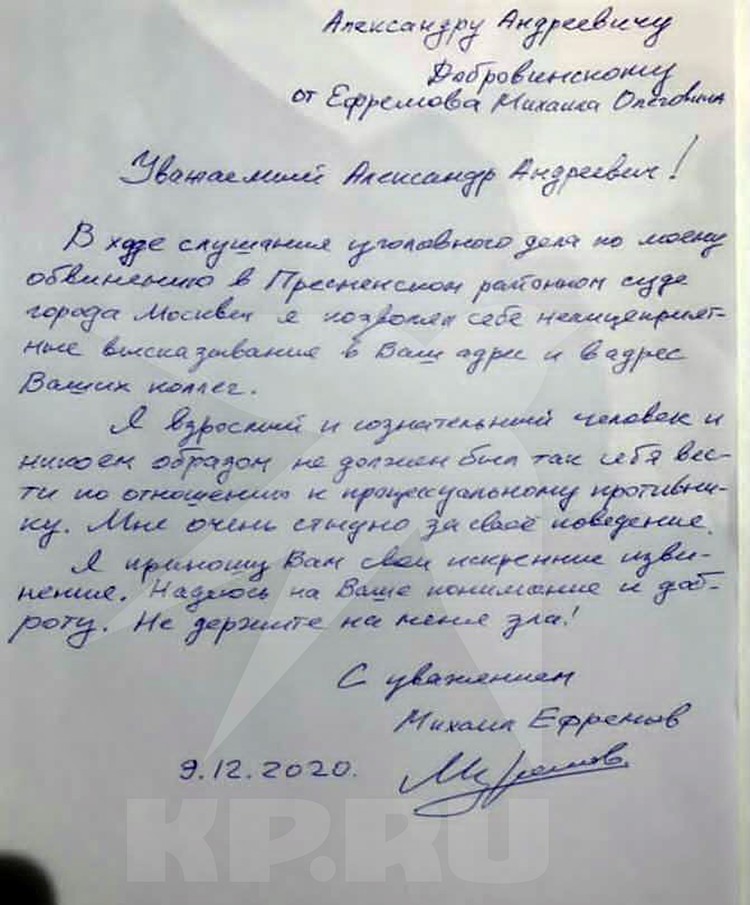 Александру Андреевичу
Добровинскому
от Ефремова Михаила Олеговича
Уважаемый Александр Андреевич!
В ходе слушания уголовного дела по моему
обвинению в Пресненском районном суде
города Москвы я позволял себе нелицеприят-
ные высказывания в Ваш адрес и в адрес
Ваших коллег.
Я взрослый и сознательный человек и
никоем образом не должен был так себя вес-
ти по отношению к процессуальному противни-
ку. Мне очень стыдно за своё поведение.
Я приношу Вам свои искренние изви-
нения. Надеюсь на Ваше понимание и доб-
роту. Не держите на меня зла!
С уважением
Михаил Ефремов
9.12.2020.
KP.RU